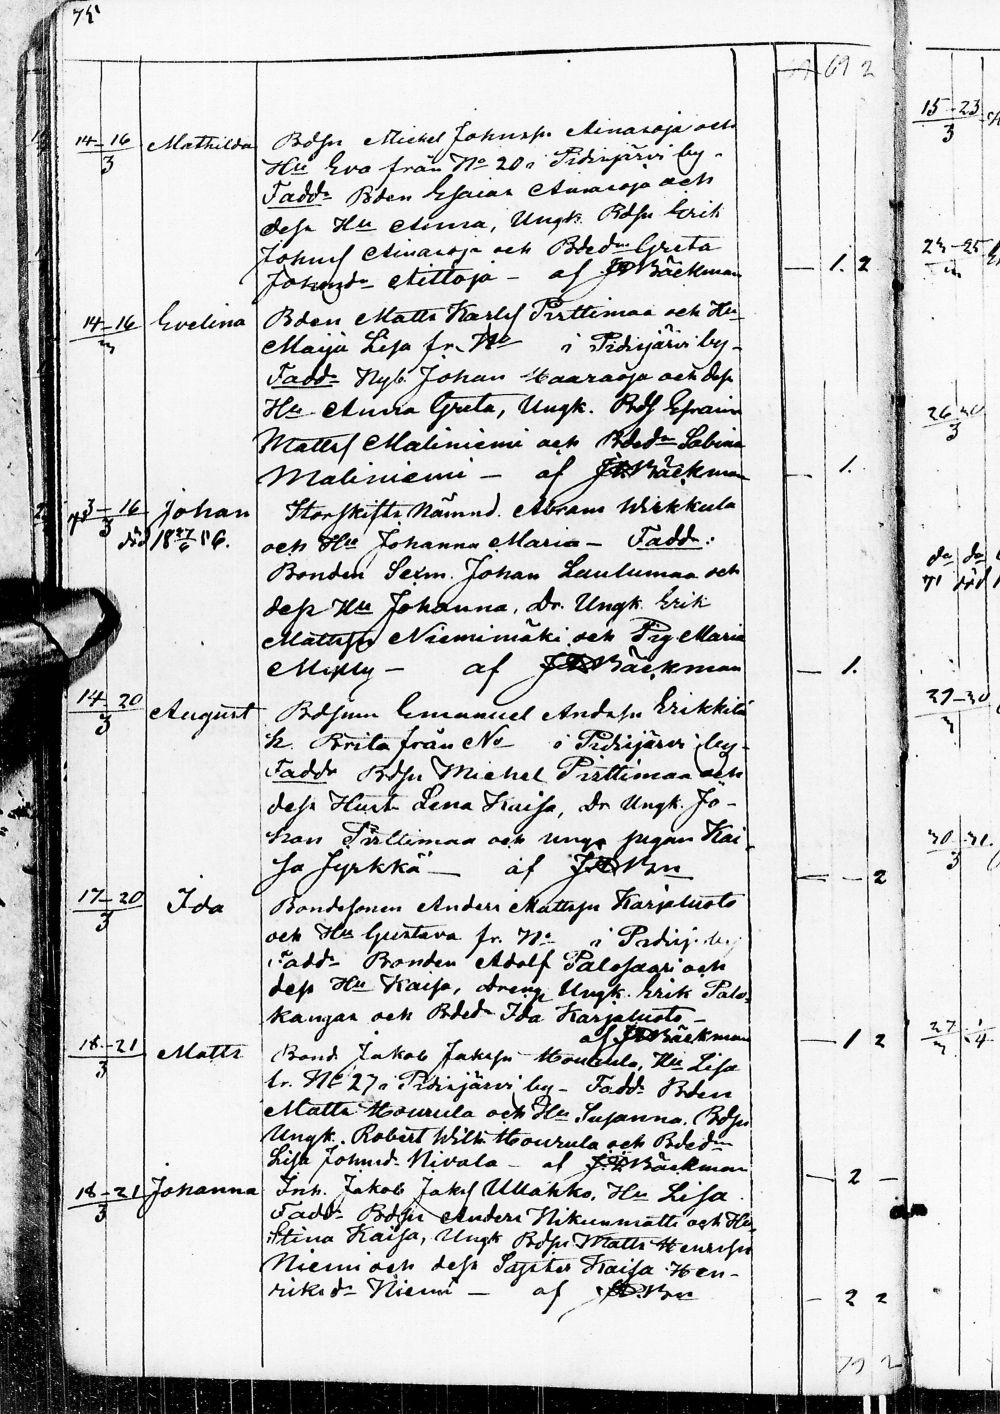 75
69 2
14–16/3 Mathilda Bdsn Michel Johnsn Ainasoja och
Hu Eva från No 20 i Pidisjärvi by.
Fadd. Bden Esaias Ainasoja och
dess Hu Anna, Ungk. Bdsn Erik
Johns Ainasoja och Bdedn Greta
Johnsdr Aittoja – af Bäckman – 1. 2
14–16/3 Evelina Bden Matts Karls Pirttimaa och Hu
Maija Lisa fr. No i Pidisjärvi by –
Fadd. Nyb. Johan Haaraoja och dess
Hu Anna Greta, Ungk. Bds Efraim
Matts Maliniemi och Bdedr Sabina
Maliniemi – af Bäckman – 1.
3–16/3 Johan Storskifts Nämnd. Abram Wirkkula
död 18 27/6 86. och Hu Johanna Maria – Fadd:
Bonden Sexm. Johan Laulumaa och
dess Hu Johanna, Dr. Ungk. Erik
Mattsn Niemimäki och Pig Maria
af Bäckman – 1.
14–20/3 August Bdsonen Emanuel Andsn Erikkilä
h. Brita från No i Pidisjärvi by –
Fadd Bdsn Michel Pirttimaa och
dess Hust. Lena Kaisa, Dr Ungk. Jo-
han Pirttimaa och unga pigan Kai-
sa Jyrkkä – af Bn – – 2
17–20/3 Ida Bondesonen Anders Mattsn Karjaluoto
och Hu Gustava fr. No i Pidisj. by
Fadd. Bonden Adolf Palosaari och
dess Hu Kaisa, dreng Ungk. Erik Palo-
kangas och Bdedr Ida Karjaluoto –
af Bäckman – 1 2
18–21/3 Matts Bond. Jakob Jakssn Hourula, Hu Lisa
fr. No 27 i Pidisjärvi by – Fadd. Bden
Matts Hourula och Hu Susanna. Bdsn
Ungk. Robert Wilh. Hourula och Bdedn
Lisa Johnsd. Nivala – af Bäckman – 2 –
18–21/3 Johanna Inh. Jakob Jaks Ullakko, Hu Lisa
Fadd. Bdsn Anders Nikunmatti och Hu
Stina Kaisa, Ungk Bdsn Matts Henrssn
Niemi och dess Syster Kaisa Hen-
riksdr Niemi – af Bn – 2 2
15–23/3
23–25
26–30/3
da da
71 död
27–30
30–31/3
27 1/4